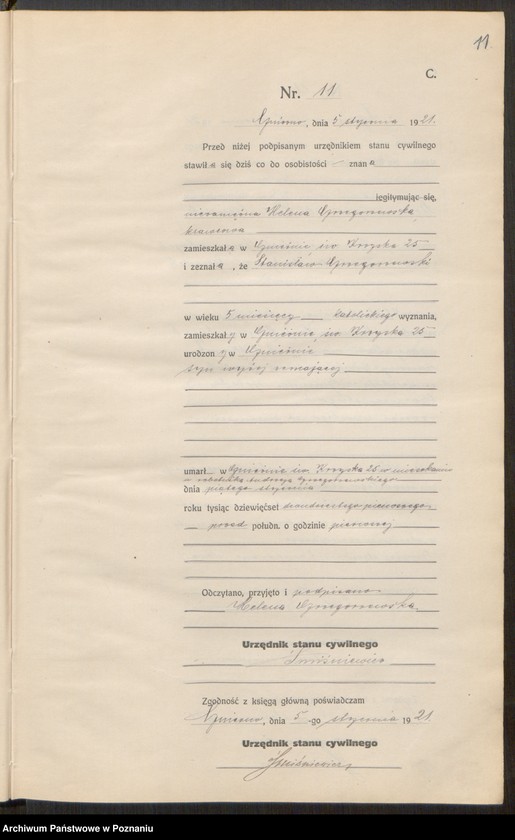 11
C.
Nr. 11
Gniezno, dnia 5 stycznia 1921.
Przed niżej podpisanym urzędnikiem stanu cywilnego
stawiła się dziś co do osobistości – znana
legitymując się,
niezamężna Helena Grzegorzewska
krawcowa
zamieszkała w Gnieźnie św. Krzyska 25
i zeznała, że Stanisław Grzegorzewski
w wieku 5 miesięcy katolickiego wyznania,
zamieszkały w Gnieźnie, św. Krzyska 25
urodzony w Gnieźnie
syn wyżej
umarł w Gnieźnie św. Krzyska 25 w mieszkaniu
dnia piątego stycznia
roku tysiąc dziewięćset dwudziestego pierwszego
– przed połudn. o godzinie pierwszej
Odczytano, przyjęto i podpisano
Helena Grzegorzewska
Urzędnik stanu cywilnego
Zgodność z księgą główną poświadczam
Gniezno, dnia 5-go stycznia 1921.
Urzędnik stanu cywilnego
Archiwum Państwowe w Poznaniu